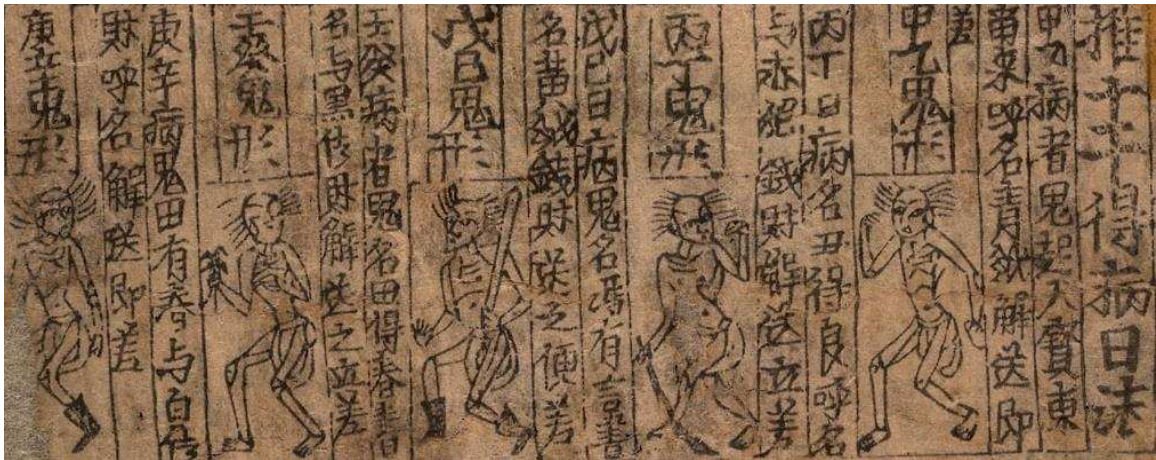 推十干得病日法
甲乙病者鬼起天賢東
南来呼名青紙解送即
差
甲乙鬼形
丙丁日病名丑得良呼名
与赤紙錢財解送立差
丙丁鬼形
戊己日病鬼名馮有喜
名黄紙錢財送之便差
戊己鬼形
壬癸病者鬼名田得春
名与黑紙財解送之立差
壬癸鬼形
庚辛病鬼田有善与白紙
財呼名解送即差
庚辛鬼形